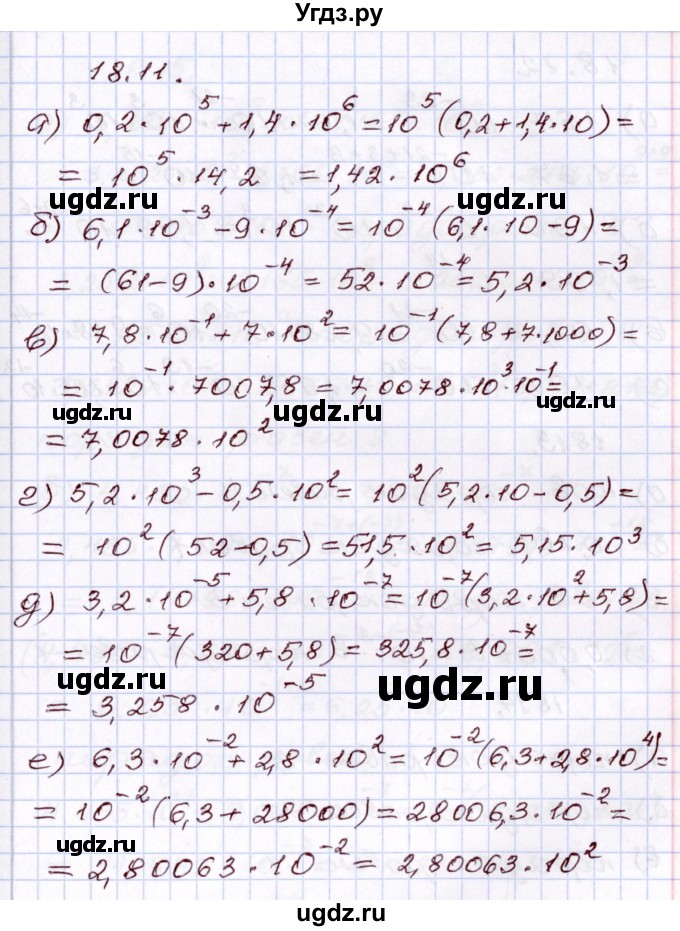 Угдз.ру
18.11.
а) 0,2·10⁵+1,4·10⁶=10⁵(0,2+1,4·10)=
= 10⁵·14,2 =1,42·10⁶
ugdz.ru ugdz.ru
б) 6,1·10⁻³-9·10⁻⁴=10⁻⁴(6,1·10-9)=
= (61-9)·10⁻⁴=52·10⁻⁴=5,2·10⁻³
в) 7,8·10⁻¹+7·10²= 10⁻¹(7,8+7·1000)=
= 10⁻¹·7007,8=7,0078·10³·10⁻¹=
ugdz.ru ugdz.ru ugdz.ru
= 7,0078·10²
г) 5,2·10³-0,5·10²= 10²(5,2·10-0,5)=
= 10²(52-0,5)=51,5·10²= 5,15·10³
д) 3,2·10⁻⁵+5,8·10⁻⁷=10⁻⁷(3,2·10²+5,8)=
= 10⁻⁷(320+5,8)=325,8·10⁻⁷=
ugdz.ru ugdz.ru
= 3,258·10⁻⁵
е) 6,3·10⁻²+2,8·10²=10⁻²(6,3+2,8·10⁴)=
= 10⁻²(6,3+28000)=28006,3·10⁻²=
ugdz.ru
= 2,80063·10⁻²= 2,80063·10²
ugdz.ru